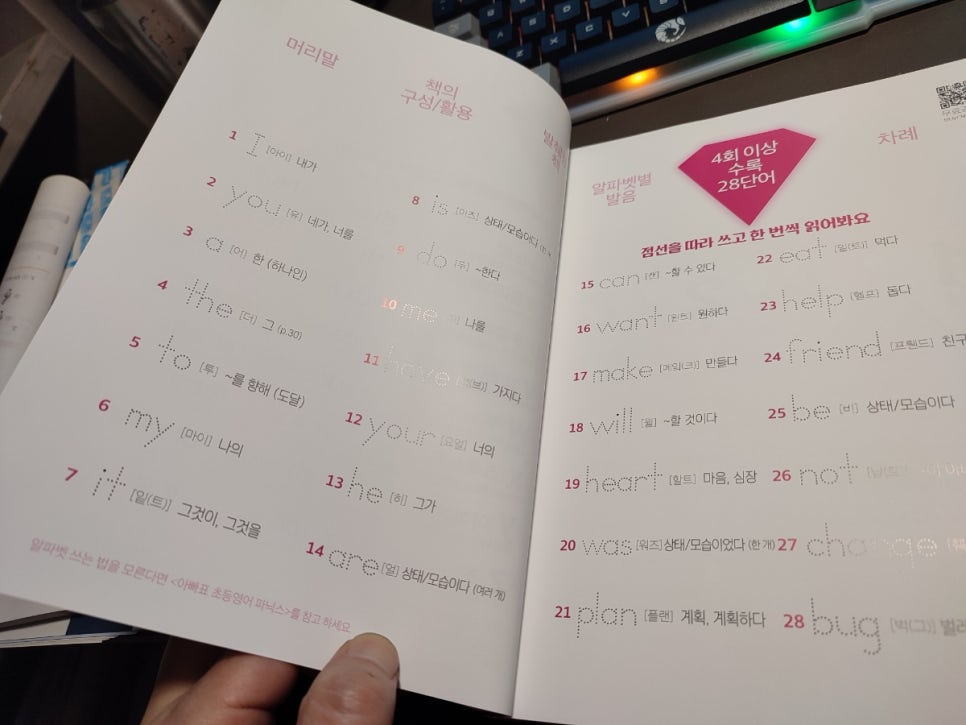 머리말
책의
구성/활용
1 I [아이] 내가
2 you [유] 네가, 너를
3 a [어] 한 (하나인)
4 the [더] 그 (p.30)
5 to [투] ~를 향해 (도달)
6 my [마이] 나의
7 it [잍(트)] 그것이, 그것을
8 is [이즈] 상태/모습이다
9 do [두] ~한다
10 me 나를
11 have 가지다
12 your [요얼] 너의
13 he [히] 그가
14 are [얼] 상태/모습이다 (여러 개)
알파벳 쓰는 법을 모른다면 <아빠표 초등영어 파닉스>를 참고 하세요.
알파벳별
발음
4회 이상
수록
28단어
차례
점선을 따라 쓰고 한 번씩 읽어봐요
15 can [캔] ~할 수 있다
16 want [원트] 원하다
17 make [메잌(크)] 만들다
18 will [윌] ~할 것이다
19 heart [할트] 마음, 심장
20 was [워즈] 상태/모습이었다 (한 개)
21 plan [플랜] 계획, 계획하다
22 eat [잍(트)] 먹다
23 help [헬프] 돕다
24 friend [프렌드] 친구
25 be [비] 상태/모습이다
26 not
27 change
28 bug [벅(그)]